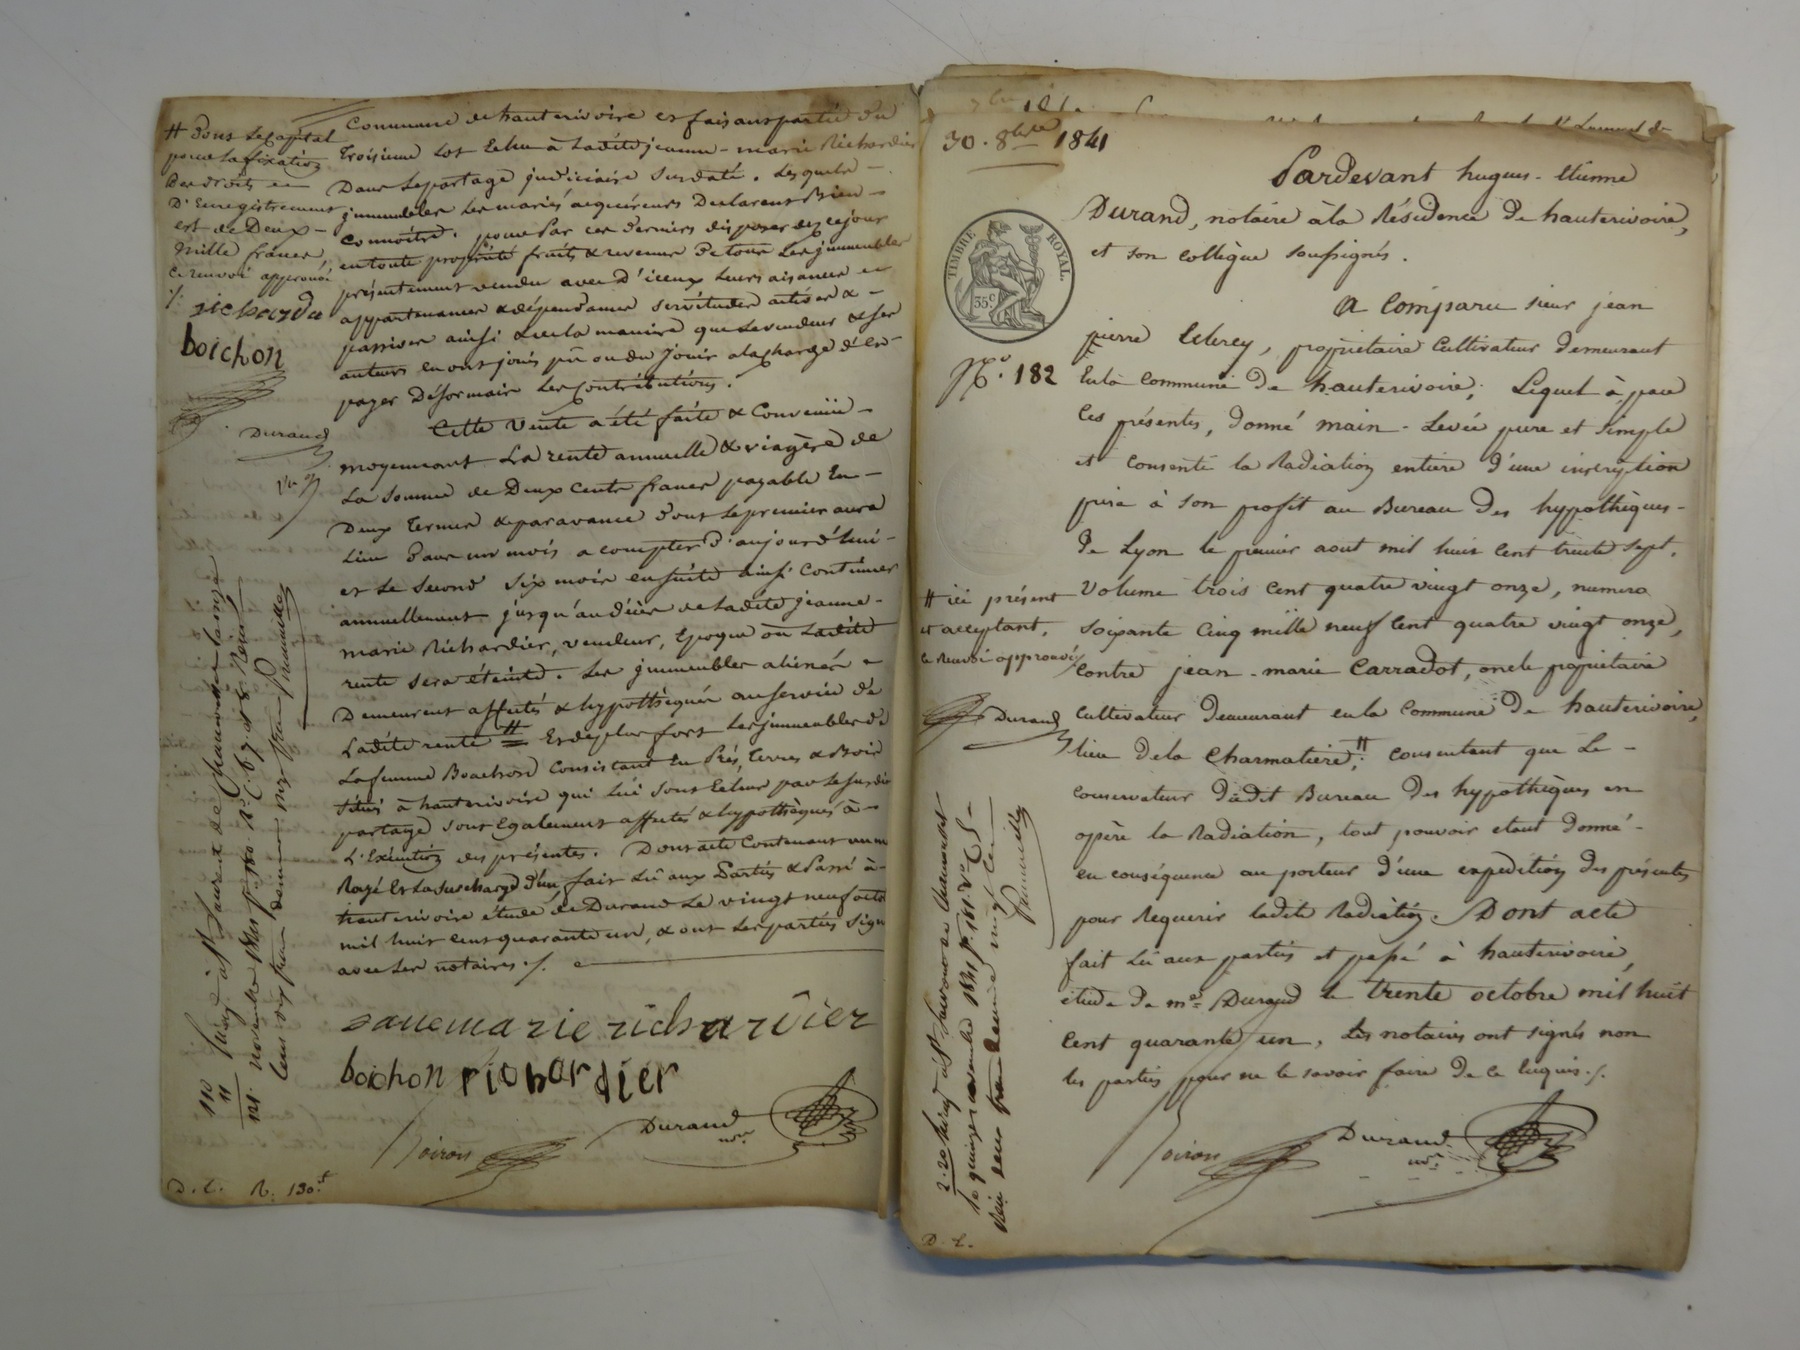 Commune de hauterivoire et faisant partie du
troisieme Lot Echu à Ladite jeanne-marie Richardier
Dans Le partage judiciaire Susdaté. Lesquels
jmmeubles Les mariés acquéreurs Declarent Bien
connoître. pour Par ces derniers disposer dez ce jour
en toute propriété fruits & revenus De tous Les jmmeubles
présentement vendus avec d'iceux Leurs aisances et
appartenances & dépendances Servitudes actives &
passives ainsi & de la maniere que Le vendeur & ses
auteurs en ont jouis pû ou du jouir a la charge d'en
payer Désormais Les Contributions.
Cette Vente a été faite & Convenüe
moyennant La rente annuelle & viagère de
La Somme de Deux Cents francs payable En
Deux Termes & par avance dont Le premier aura
Lieu dans un mois a compter d'aujourd'hui
et Le Second Six mois ensuite ainsi Continuer
annuellement jusqu'au décès de Ladite jeanne
marie Richardier, vendeur, Epoque où Ladite
rente Sera éteinte. Les jmmeubles aliénés
Demeurent affectés & hypothéqués au Service de
Ladite rente # Et de plus fort Les jmmeubles de
La femme Boichon Consistant En Prés, Terres & Bois
Situés à hauterivoire qui Lui Sont Echus par Le Susdit
partage Sont Egalement affectés & hypothéqués à
L'Exécution des présentes. Dont acte Contenant un m
Rayé Et La Surcharge d'un, fait Lû aux Parties & Passé à
hauterivoire étude de Durand Le vingt neuf octo
mil huit cent quarante un, & ont Les parties Sign
avec Les notaires ./.
# dont Le Capital
pour La fixation
Des droits
D'Enregistrement
est de Deux
mille francs,
Ce renvoi approuvé
richardie
boichon
Durand
janemarie richardier
boichon richardier
Durand
noire
110
11
121
D. C. R. 130
30. 8bre 1841
Pardevant hugues-Etienne
Durand, notaire à la Résidence De hauterivoire,
et son collègue soussignés.
TIMBRE ROYAL.
35c
A Comparu sieur jean
pierre
propriétaire Cultivateur demeurant
No. 182
En la commune De hauterivoire; Lequel à par
Ces présentes, Donné main-Levée pure et simple
et consenti la Radiation entiere d'une inscription
prise à son profit au Bureau Des hypothèques
De Lyon le premier aout mil huit Cent trente sept.
Volume trois cent quatre vingt onze, numero
soixante Cinq mille neuf Cent quatre vingt onze,
contre jean-marie Carradot, oncle propriétaire
cultivateur demeurant en la commune De hauterivoire,
lieu De la Charmatiere #; consentant que Le
conservateur dudit Bureau Des hypothèques en
opère la Radiation, tout pouvoir etant Donné
en conséquence au porteur d'une expédition Des présentes
pour Requerir ladite Radiation. Dont acte
fait Lû aux parties et passé à hauterivoire,
étude de me Durand le trente octobre mil huit
Cent quarante un, Les notaires ont signés non
les parties pour ne le savoir faire De ce Requis ./.
# ici présent
et acceptant,
ce Renvoi approuvé
Durand
Durand
noire
D. C.